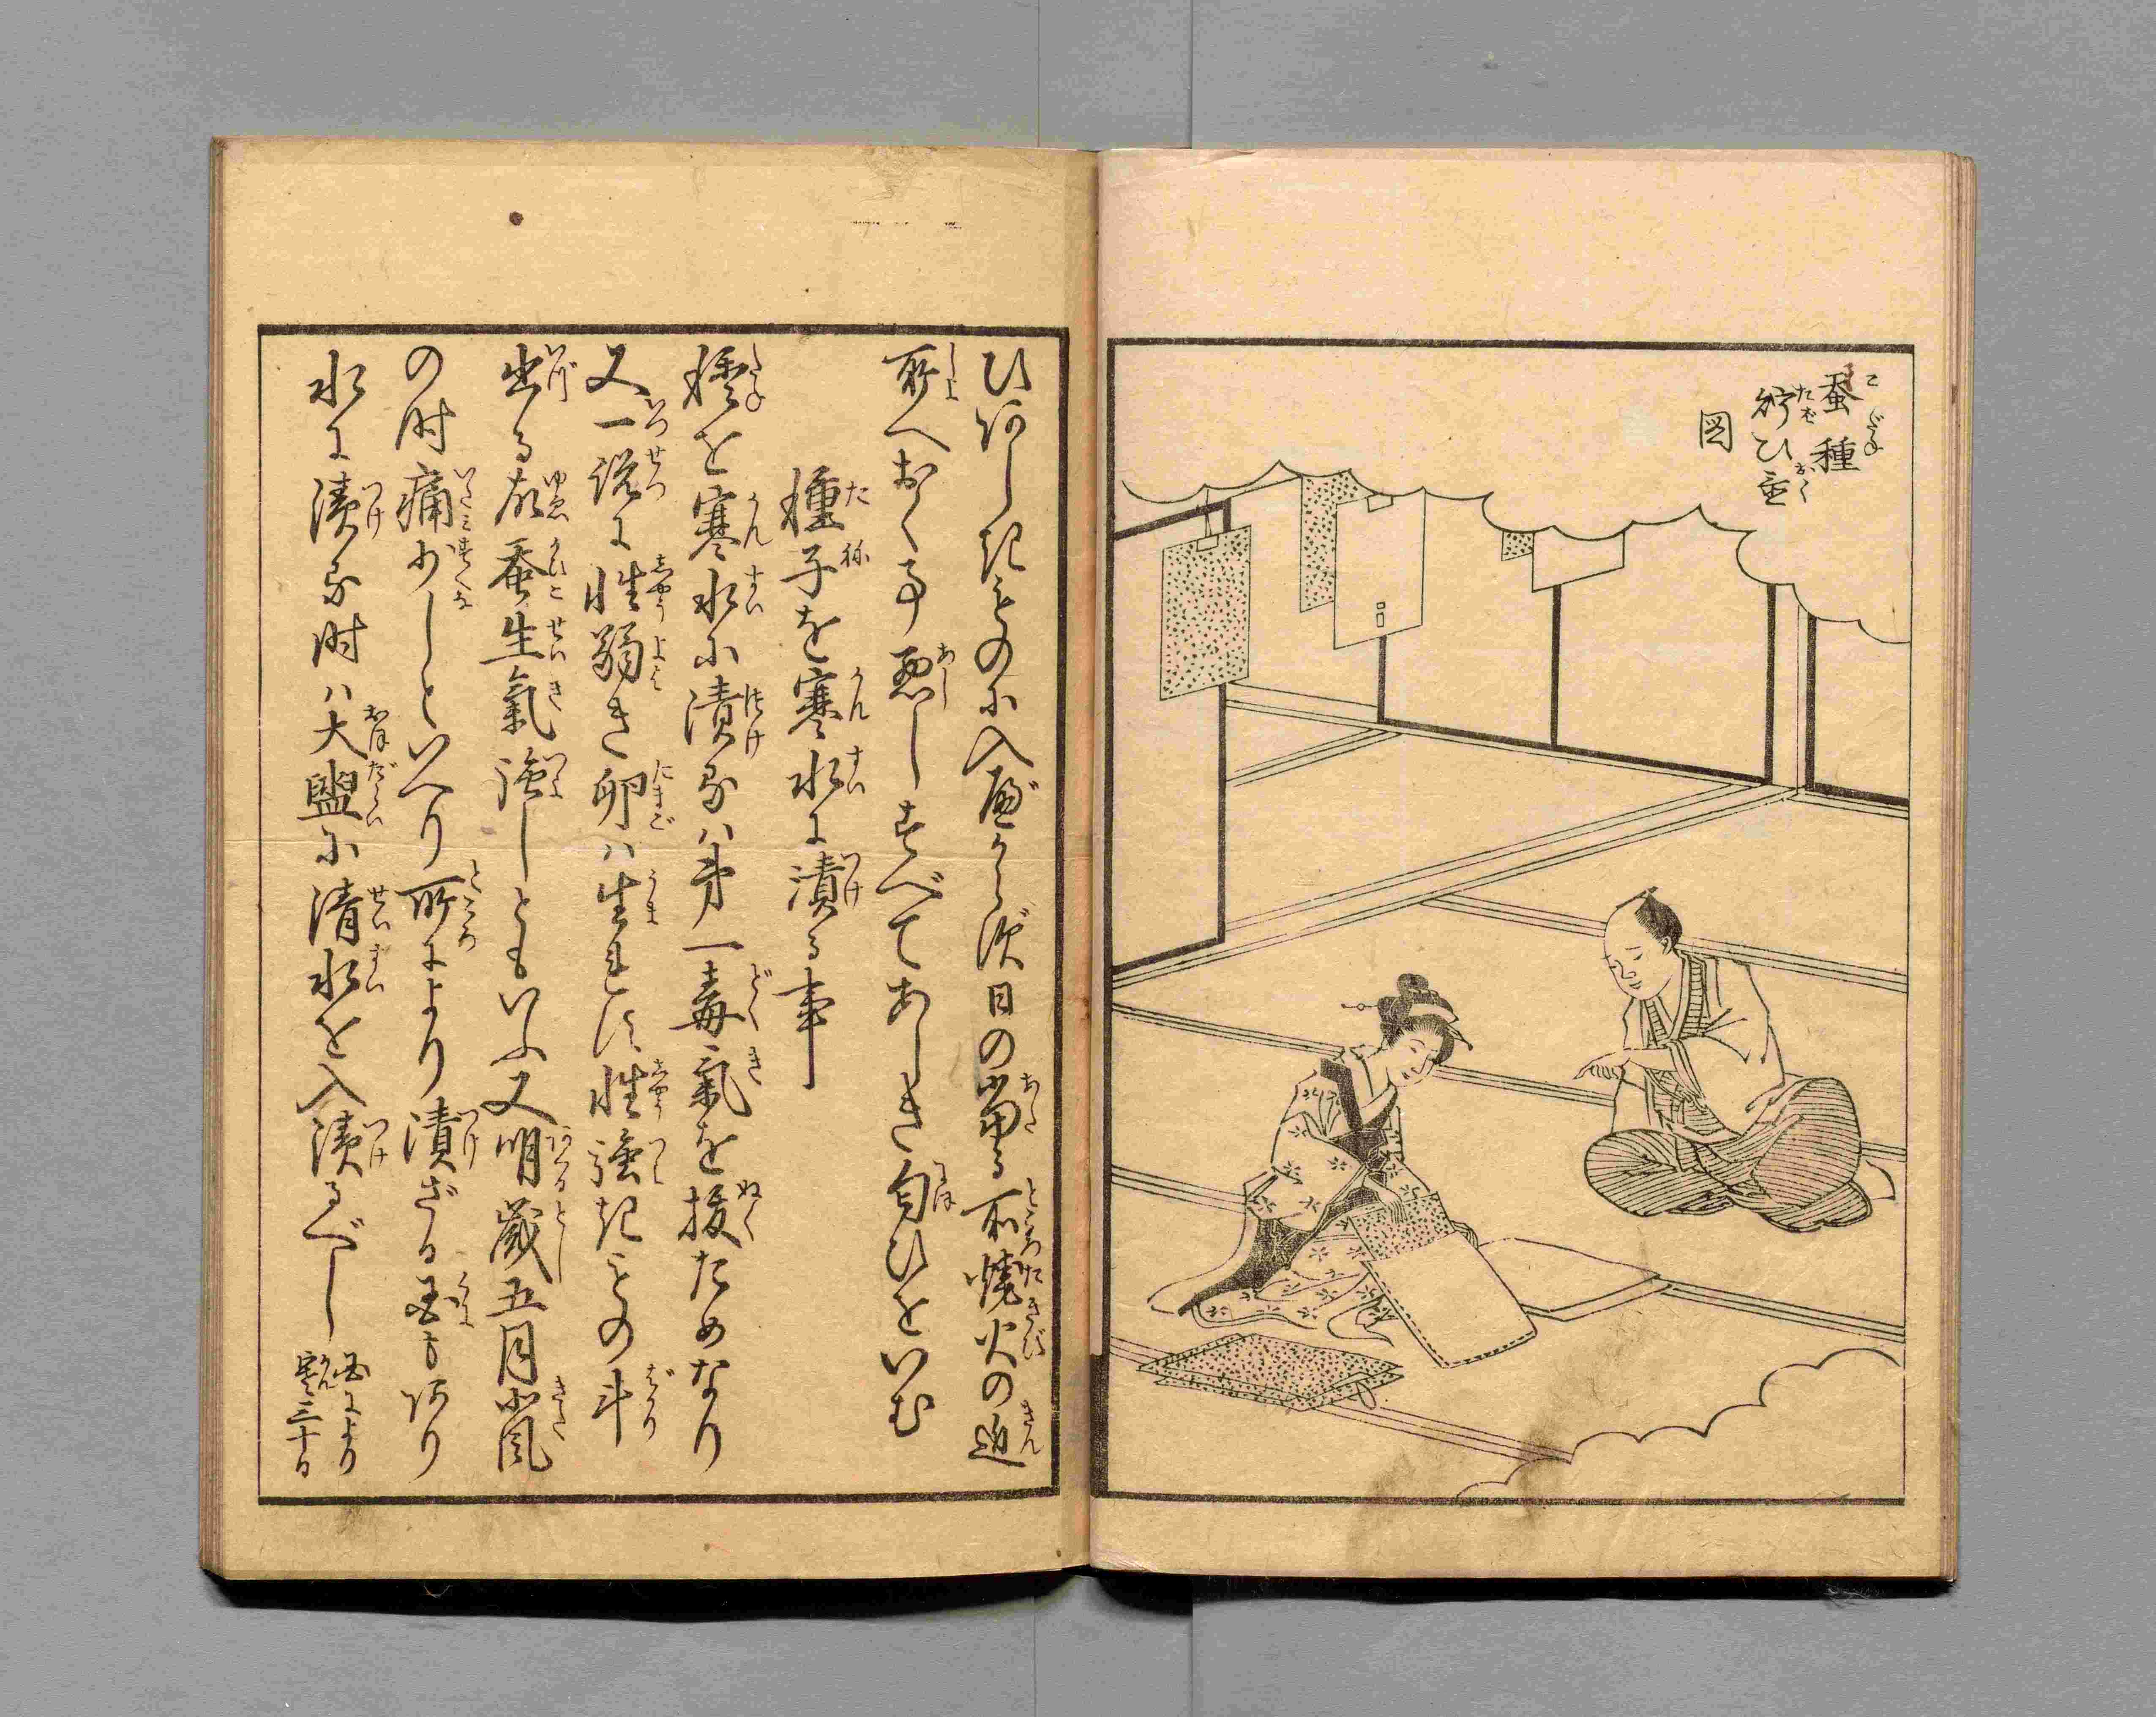 蚕種
貯ひ置
図
ひ阿しきものに入べからず日の當る所燒火の近
所へおく事悪しすべてあしき匂ひをいむ
種子を寒水に漬る事
種を寒水に漬るハ第一毒氣を抜ためなり
又一説に性弱き卵ハ生れず性強きもの斗
出る故蚕生氣強しともいふ又明歳五月北風
の时痛少しといへり所により漬ざる国も阿り
水に漬る时ハ大盥に清水を入漬るべし
国により
寒三十日